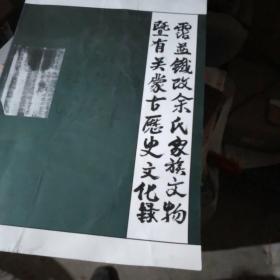 霑益铁改余氏家族文物
暨有关蒙古历史文化录